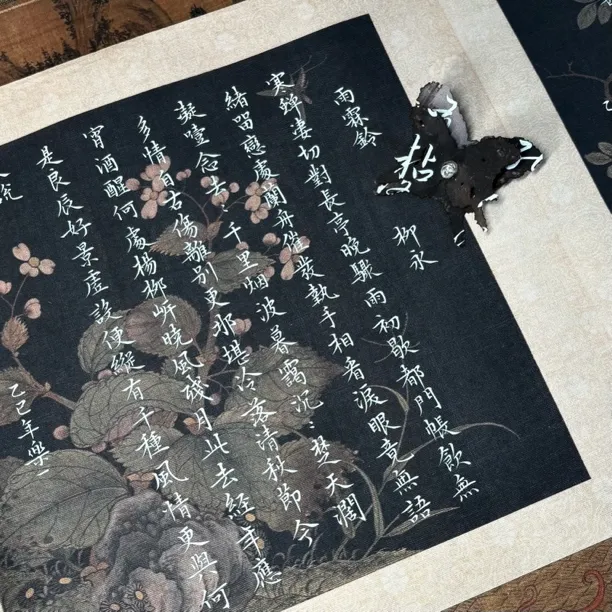 雨霖鈴 柳永
寒蟬淒切對長亭晚驟雨初歇都門帳飲無
緒留戀處蘭舟催發執手相看淚眼竟無語
凝噎念去々千里烟波暮靄沉々楚天闊
多情自古傷離別更那堪冷落清秋節今
宵酒醒何處楊柳岸曉風殘月此去經年應
是良辰好景虛設便縱有千種風情更與何
人說
乙巳年樂